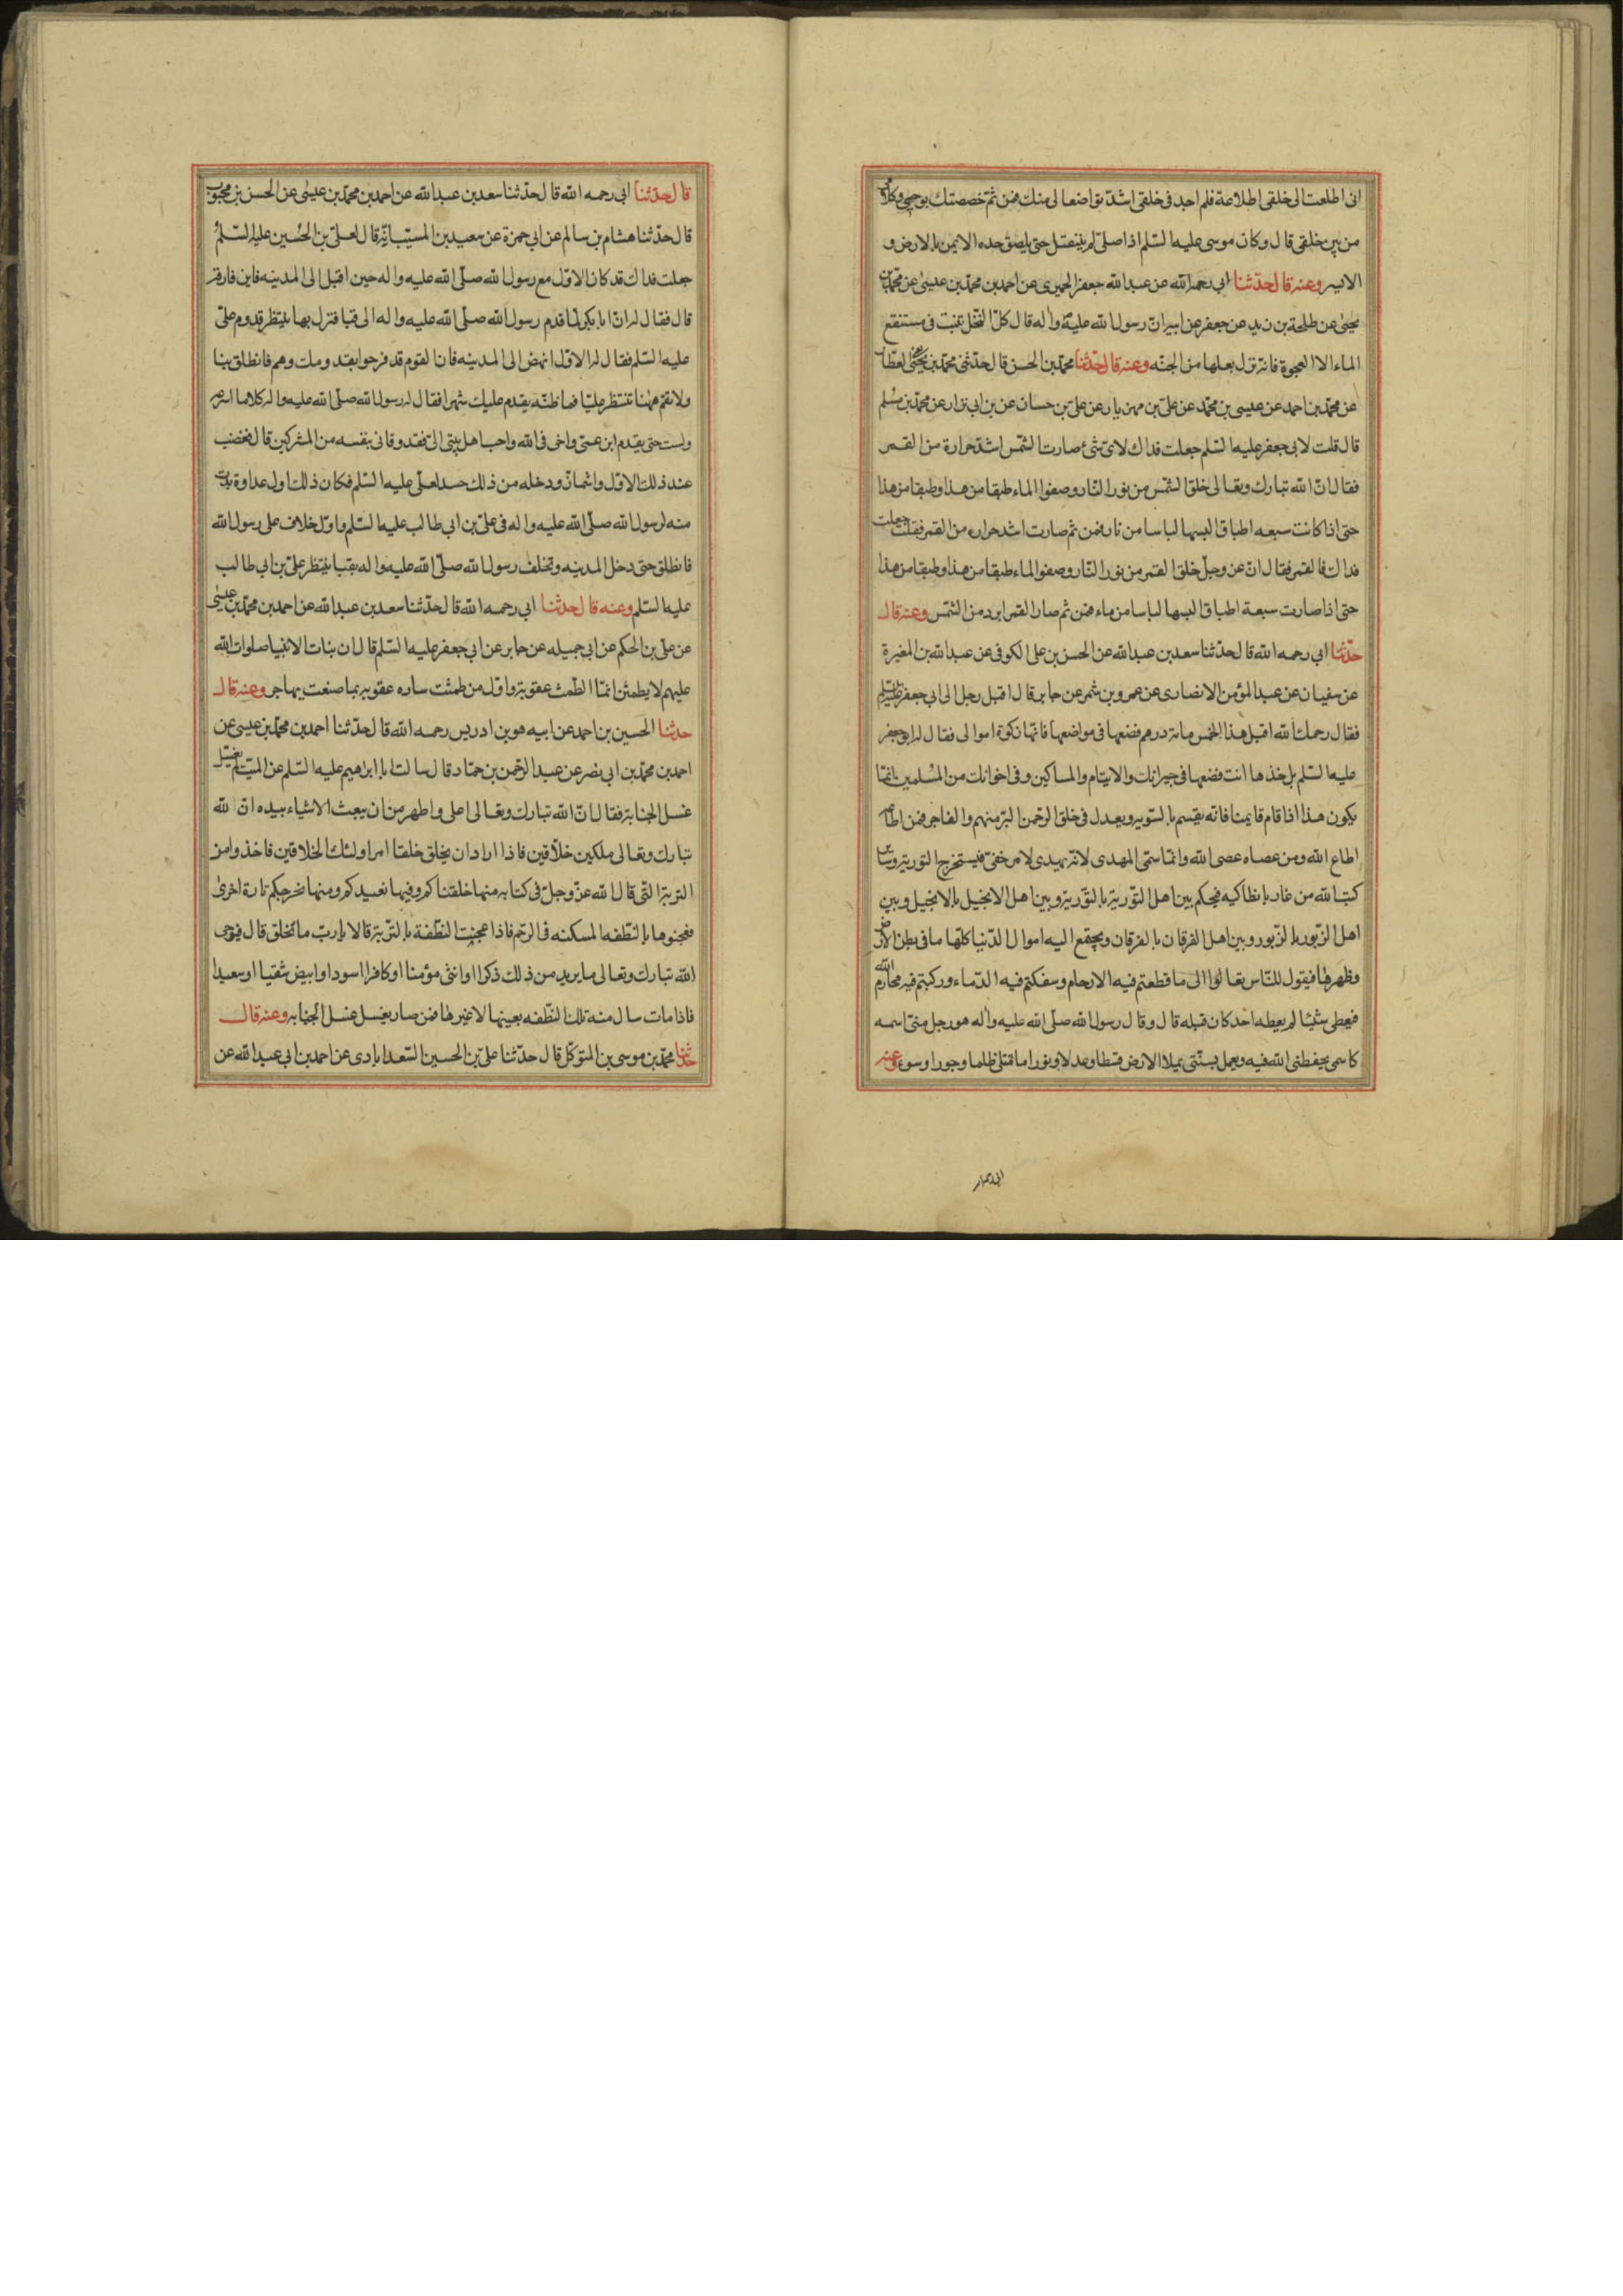 انى اطلعت الى خلقى اطلاعة فلم اجد فى خلقى اشدّ تواضعا لى منك فمن ثمّ خصصتك بوحيى وكلامى
من بين خلقى قال وكان موسى عليه السّلم اذا صلّى لم ينفتل حتى يلصق خده الايمن بالارض و
الايسر وعنه قال حدّثنا ابى رحمه الله عن عبد الله جعفر الحميرى عن احمد بن محمّد بن عيسى عن محمّد بن
يحيى عن طلحة بن زيد عن جعفر عن ابيه انّ رسول الله عليه واله قال كلّ النخل تنبت فى مستنقع
الماء الا العجوة فانه نزل بعلها من الجنّه وعنه قال حدّثنا محمّد بن الحسن قال حدّثنى محمّد بن يحيى العطار
عن محمّد بن احمد عن عيسى بن محمّد عن علىّ بن مهزيار عن علىّ بن حسان عن بن ابى نزار عن محمّد بن مسلم
قال قلت لابى جعفر عليه السّلم جعلت فداك لاىّ شئ صارت الشّمس اشدّ حرارة من القمر
فقال انّ الله تبارك وتعالى خلق الشّمس من نور النّار وصفوا الماء طبقا من هذا وطبقا من هذا
حتى اذا كانت سبعه اطباق البسها لباسا من نار فمن ثم صارت اشد حراره من القمر فقلت جعلت
فداك فالقمر فقال انّ عز وجلّ خلق القمر من نور النّار وصفوا الماء طبقا من هذا وطبقا من هذا
حتى اذا صارت سبعة اطباق البسها لباسا من ماء فمن ثم صار القمر ابرد من الشمّس وعنه قال
حدّثنا ابى رحمه الله قال حدّثنا سعد بن عبد الله عن الحسن بن على الكوفى عن عبد الله بن المغيرة
عن سفيان عن عبد المؤمن الانصارى عن عمرو بن شمر عن جابر قال اقبل رجل الى ابى جعفر عليه السلم
فقال رحمك الله اقبل هذا الخمس مائة درهم فضعها فى مواضعها فانّها زكوة اموالى فقال له ابو جعفر
عليه السّلم بل خذها انت فضعها فى جيرانك والايتام والمساكين وفى اخوانك من المسلمين انمّا
يكون هذا اذا قام قايمنا فانّه يقسم بالسّويه ويعدل فى خلق الرحّمن البرّ منهم والفاجر فمن اطاعه
اطاع الله ومن عصاه عصى الله وانّما سمّى المهدى لانّه يهدى لامر خفىّ فيستخرج التورية وسائر
كتب الله من غار بانطاكيه فيحكم بين اهل التّورية بالتّورية وبين اهل الانجيل بالانجيل وبين
اهل الزّبور بالزّبور وبين اهل الفرقان بالفرقان ويجتمع اليه اموال الدّنيا كلّها ما فى بطن الارض
وظهرها فيقول للنّاس تعالوا الى ما قطعتم فيه الارحام وسفكتم فيه الدّماء وركبتم فيه محارم الله
فيعطى شيئا لم يعطه احد كان قبله قال وقال رسول الله صلّى الله عليه واله هو رجل منّى اسمه
كاسمى يحفظنى الله فيه ويعمل بسنّتى يملا الارض قسطا وعدلا ونورا ما تمتلى ظلما وجورا وسوء وعنه
قال حدّثنا ابى رحمه الله قال حدّثنا سعد بن عبد الله عن احمد بن محمّد بن عيسى عن الحسن بن محبوب
قال حدّثنا هشام بن سالم عن ابى حمزة عن سعيد بن المسيّب انّه قال لعلىّ بن الحسين عليه السّلم
جعلت فداك قد كان الاوّل مع رسول الله صلّى الله عليه واله حين اقبل الى المدينه فاين فارقه
قال فقال له انّ ابا بكر لمّا قدم رسول الله صلّى الله عليه واله الى قبا فنزل بها ينتظر قدوم علىّ
عليه السّلم فقال له الاوّل انهض الى المدينه فان القوم قد فرحوا بقدومك وهم فانطلق بنا
ولا تقم ههنا تنتظر عليّا فما اظنّه يقدم عليك شهرا فقال له رسول الله صلّى الله عليه واله كلا ما اسرعه
ولست حتى يقدم ابن عمى واخى فى الله واحب اهل بيتى الىّ فقد وقانى بنفسه من المشركين قال فغضب
عند ذلك الاوّل واشمازّ ودخله من ذلك حسد لعلىّ عليه السّلم فكان ذلك اول عداوة بدت
منه لرسول الله صلّى الله عليه واله فى علىّ بن ابى طالب عليه السّلم واوّل خلاف على رسول الله
فانطلق حتى دخل المدينه وتخلف رسول الله صلّى الله عليه واله بقبا ينتظر علىّ بن ابى طالب
عليه السّلم وعنه قال حدثنا ابى رحمه الله قال حدّثنا سعد بن عبد الله عن احمد بن محمّد بن عيسى
عن على بن الحكم عن ابى جميله عن جابر عن ابى جعفر عليه السّلم قال ان بنات الانبيا صلوات الله
عليهم لا يطمثن انمّا الطمث عقوبة واوّل من طمثت ساره عقوبه بما صنعت بهاجر وعنه قال
حدثنا الحسين بن احمد عن ابيه هو بن ادريس رحمه الله قال حدّثنا احمد بن محمّد بن عيسى عن
احمد بن محمّد بن ابى نصر عن عبد الرحّمن بن حمّاد قال سالت ابا ابرهيم عليه السّلم عن الميّت لم يغسّل
غسل الجنابة فقال انّ الله تبارك وتعالى اعلى واطهر من ان يبعث الاشياء بيده انّ لله
تبارك وتعالى ملكين خلّاقين فاذا اراد ان يخلق خلقا امر اولئك الخلاقين فاخذوا من
التربة التّى قال الله عزّ وجلّ فى كتابه منها خلقناكم وفيها نعيدكم ومنها نخرجكم تارة اخرى
فعجنوها بالنطّفه المسكنه فى الرحّم فاذا عجنت النطّفة بالترّبة قالا يا ربّ ما تخلق قال فيوحى
الله تبارك وتعالى ما يريد من ذلك ذكرا او انثى مؤمنا او كافرا اسود او ابيض شقيا او سعيدا
فاذا مات سال منه تلك النطّفه بعينها لا غيرها فمن صار يغسل غسل الجنابه وعنه قال
حدّثنا محمّد بن موسى بن المتوكّل قال حدّثنا علىّ بن الحسين السّعدابادى عن احمد بن ابى عبد الله عن